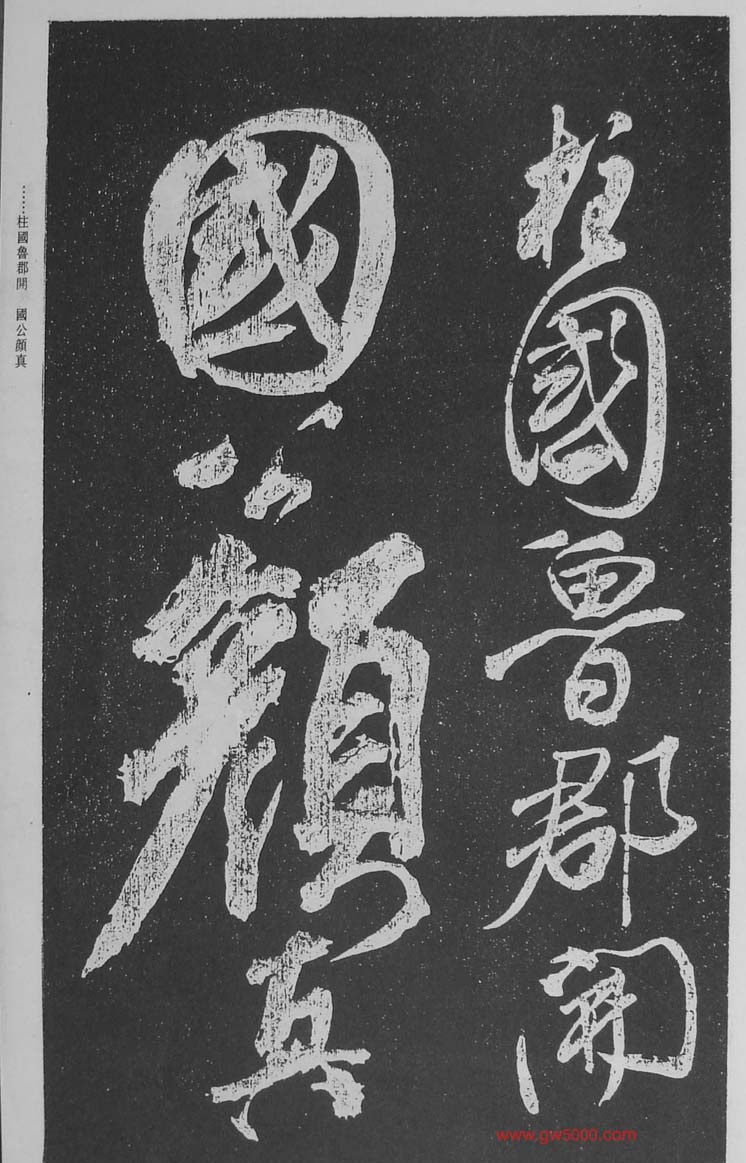 柱國魯郡開
國公顔真
……柱國魯郡開　國公顔真
www.gw5000.com